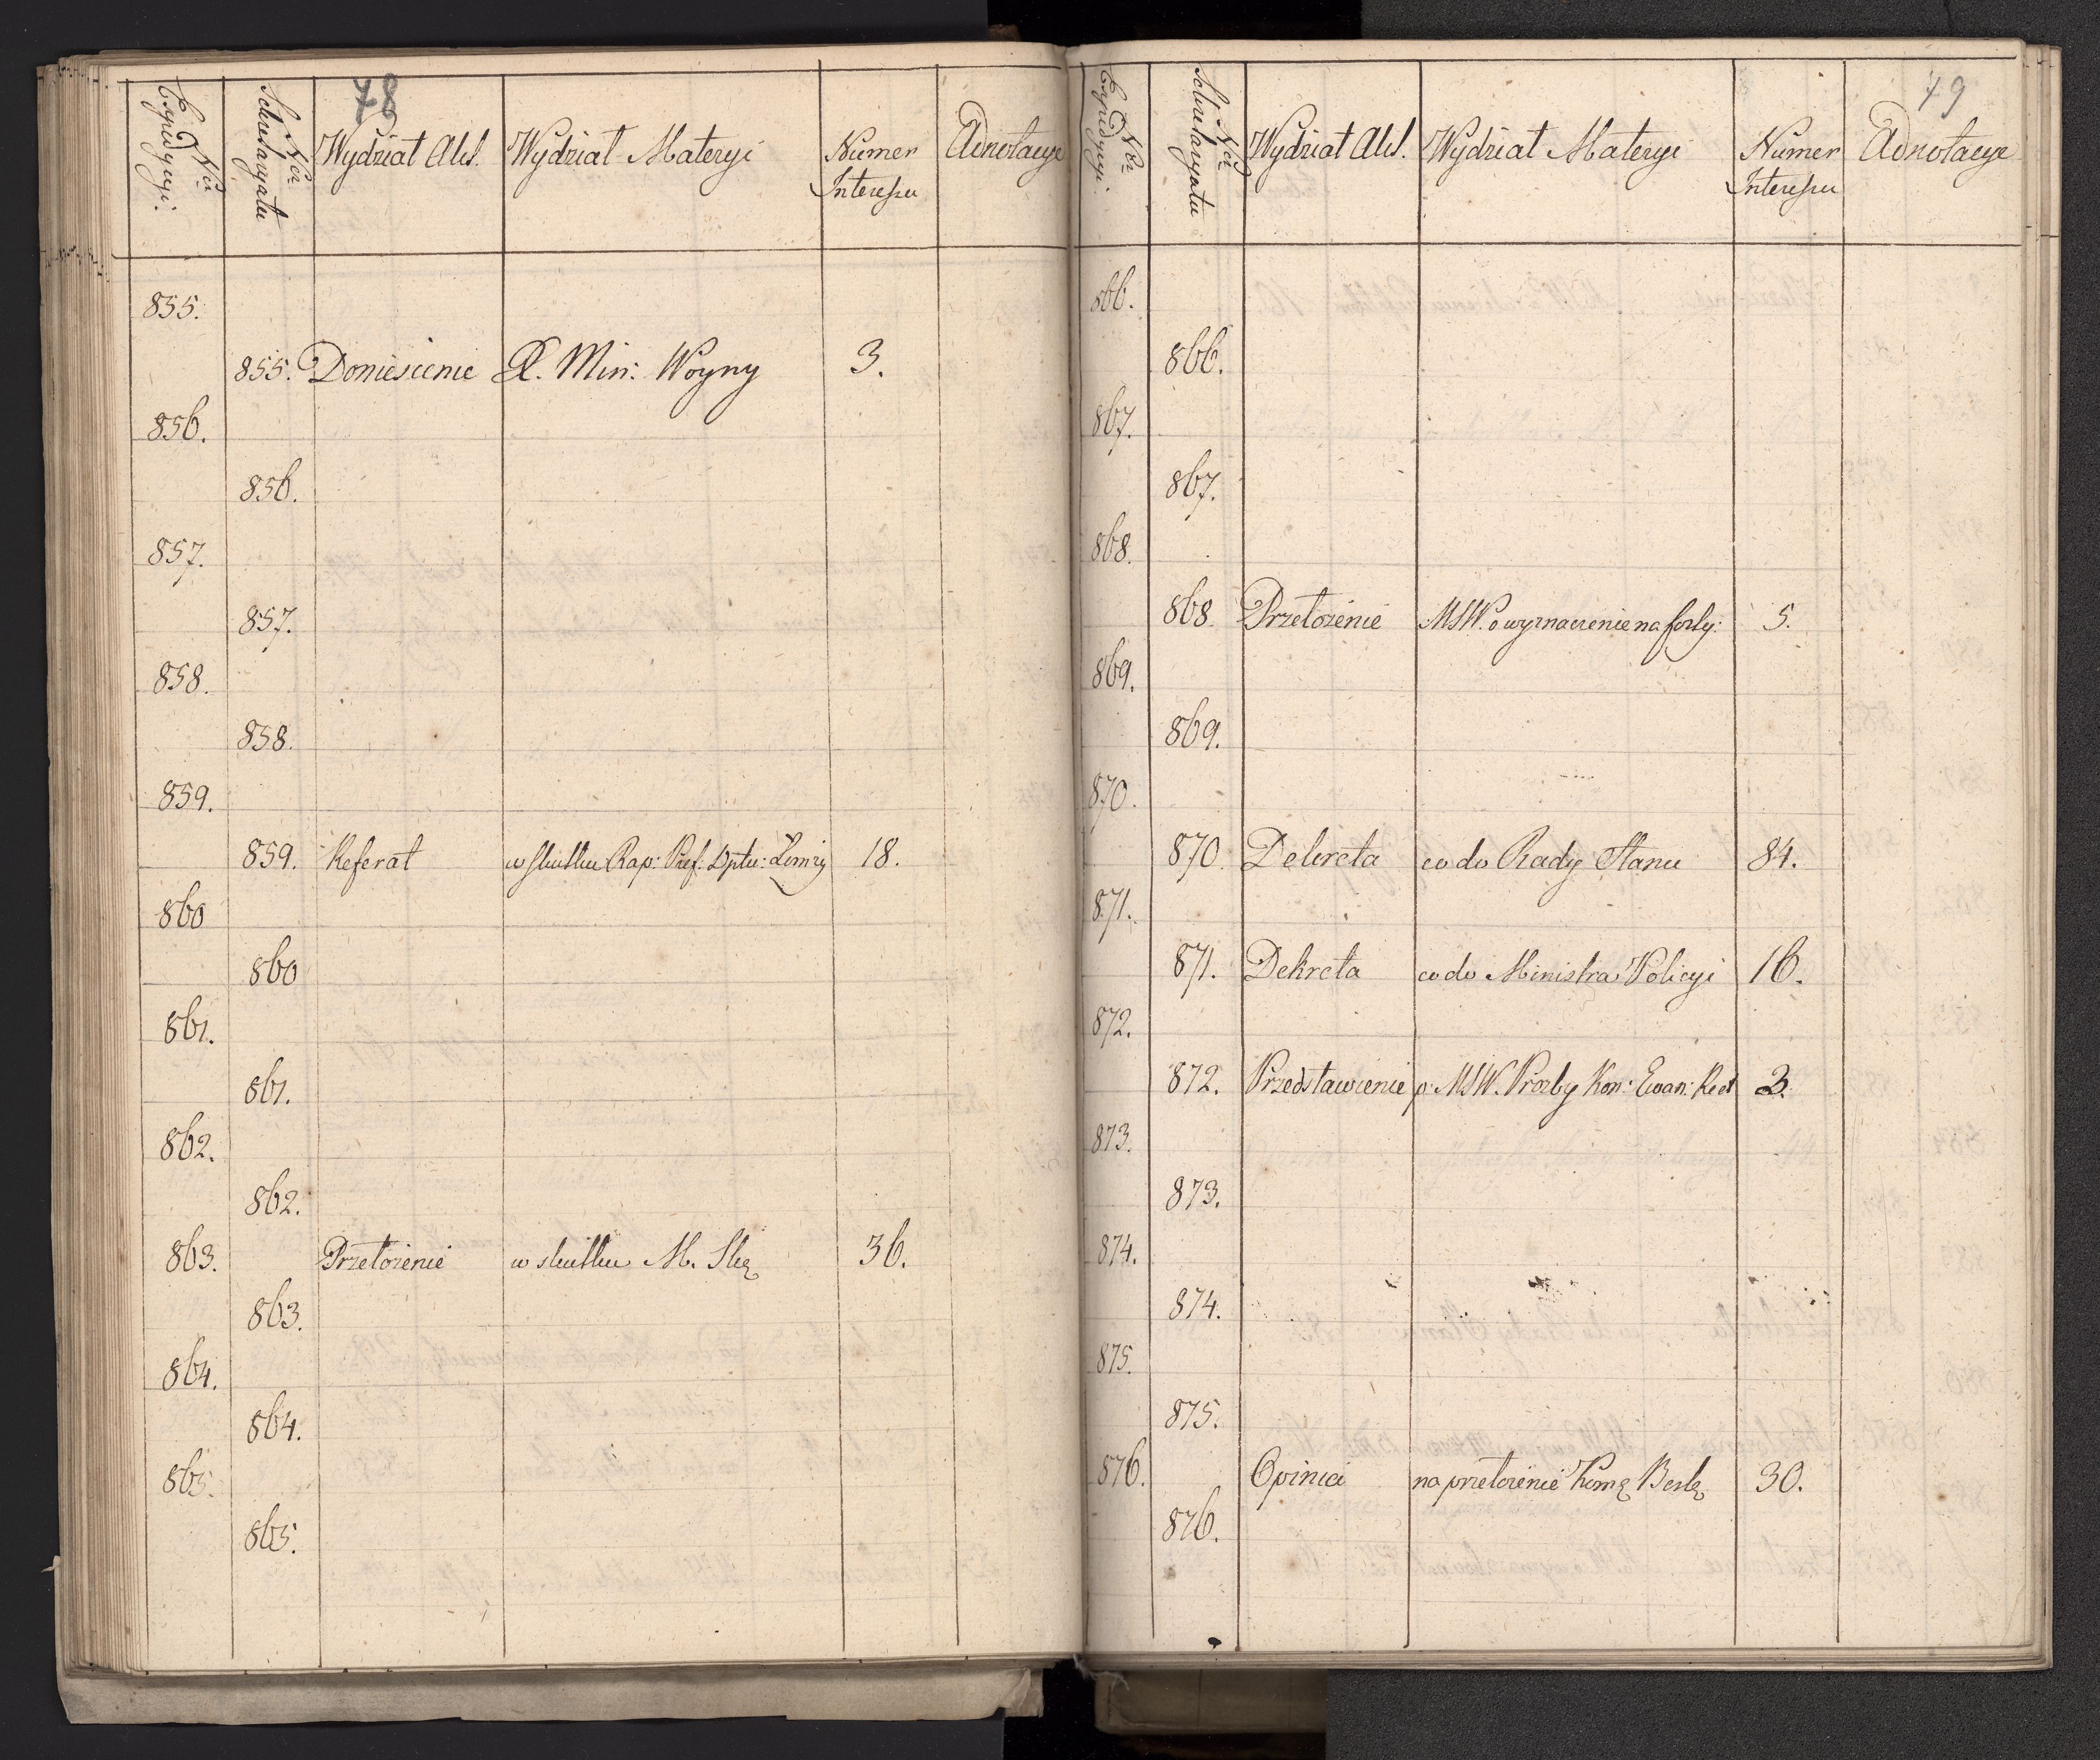 78
Nor Expedycyi.
Nor Sekretaryatu
Wydział Akt.
Wydział Materyi
Numer Interessu
Adnotacye
855.
855. Doniesienie X. Min: Woyny 3.
856.
856.
857.
857.
858.
858.
859.
859. Referat w skutku Rap: Pref: Dptu: Łomży 18.
860
860
861.
861.
862.
862.
863. Przełożenie w skutku M. Skę 36.
863.
864.
864.
865.
865.
79
Nor Expedycyi.
Nor Sekretaryatu
Wydział Akt.
Wydział Materyi
Numer Interessu
Adnotacye
866.
866.
867.
867.
868.
868 Przełożenie MSW. o wyznaczenie na 5.
869.
869.
870.
870. Dekreta co do Rady Stanu 84.
871.
871. Dekreta co do Ministra Policyi 16.
872.
872. Przedstawienie p. MSW. Prozby Kon: Ewan: 2.
873.
873.
874.
874.
875.
875.
876. Opinia na przełożenie 30.
876.